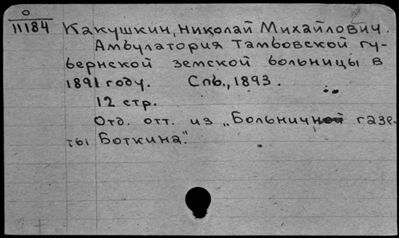 О
11184 Какушкин, Николай Михайлович.
Амбулатория Тамбовской гу-
бернской земской больницы в
1891 году. Спб., 1893.
12 стр.
Отд. отт. из „Больничной газе-
ты Боткина".